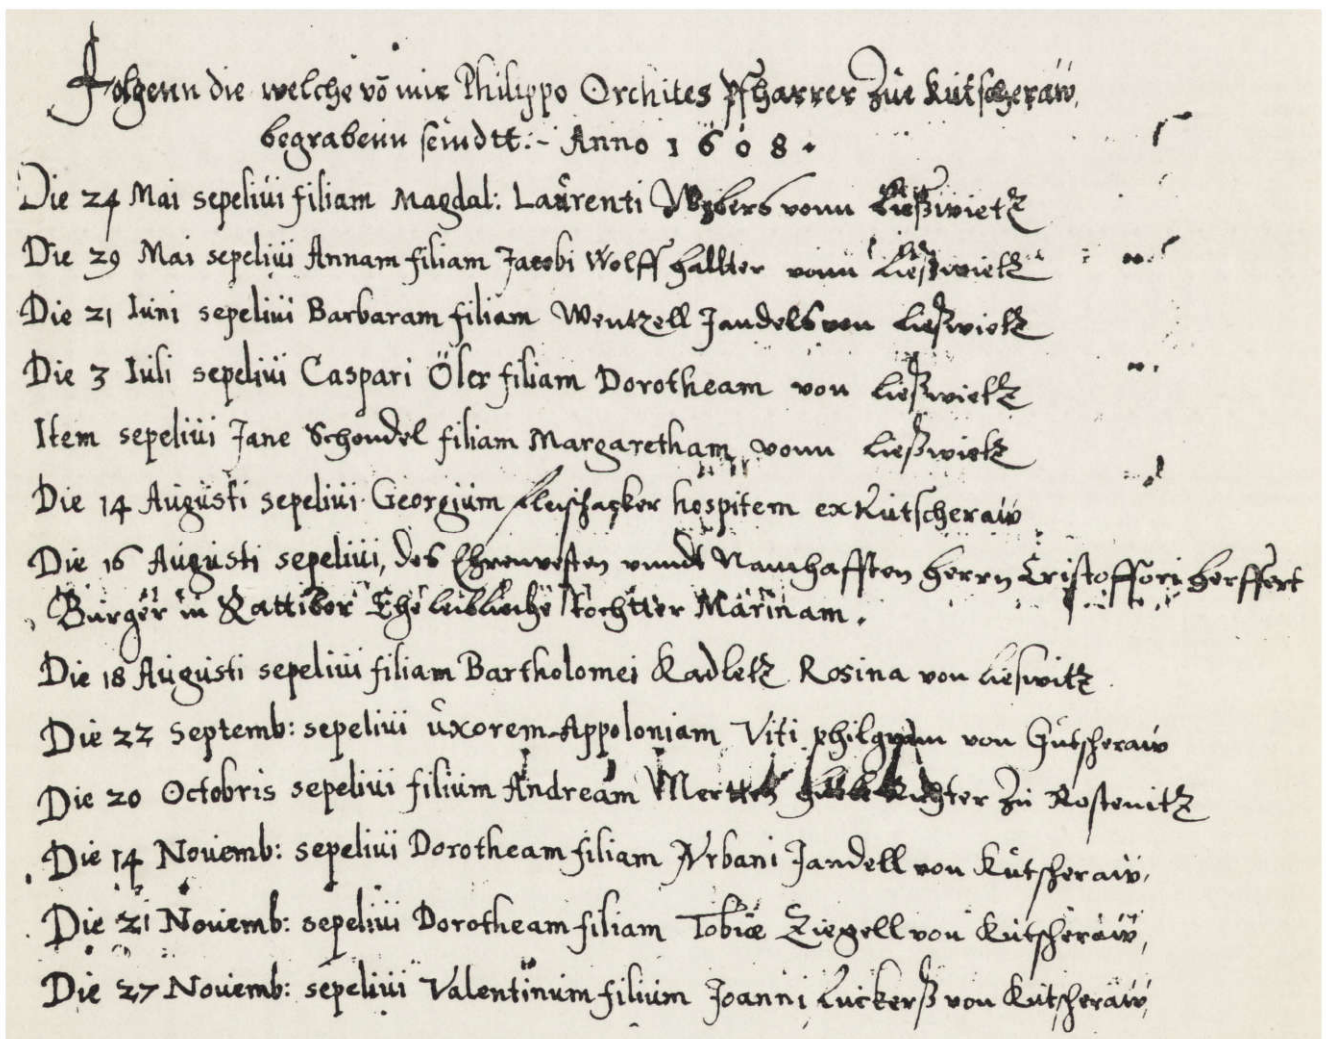 Folgenn die welche võ mir Philippo Orchites Pfharrer Zue Kutscheraw,
begrabenn seindtt:- Anno 1608.
Die 24 Mai sepelivi filiam Magdal: Laurenti vonn Ließwietz
Die 29 Mai sepelivi Annam filiam Jacobi Wolff hallter vonn Ließwietz
Die 21 Iuni sepelivi Barbaram filiam Wentzell Jandels von Ließwietz
Die 3 Iuli sepelivi Caspari Öler filiam Dorotheam von Ließwietz
Item sepelivi Jane Schondel filiam Margaretham vonn Ließwietz
Die 14 Augusti sepelivi Georgium fleischacker hospitem ex Kutscheraw
Die 16 Augusti sepelivi, des Ehrenvesten vnndt Namhafften herrn Cristoffori herffert
Burger in Rattibor Eheleibliche tochtter Marinam.
Die 18 Augusti sepelivi filiam Bartholomei Kadletz Rosina von Lieswitz
Die 22 Septemb: sepelivi uxorem Appoloniam Viti von Gutscheraw
Die 20 Octobris sepelivi filium Andream zu Rostenitz
Die 14 Nouemb: sepelivi Dorotheam filiam Vrbani Jandell von Kutscheraw,
Die 21 Nouemb: sepelivi Dorotheam filiam Tobiæ Ziegell von Kutscheraw,
Die 27 Nouemb: sepelivi Valentinum filium Joanni Luckerß von Kutscheraw,